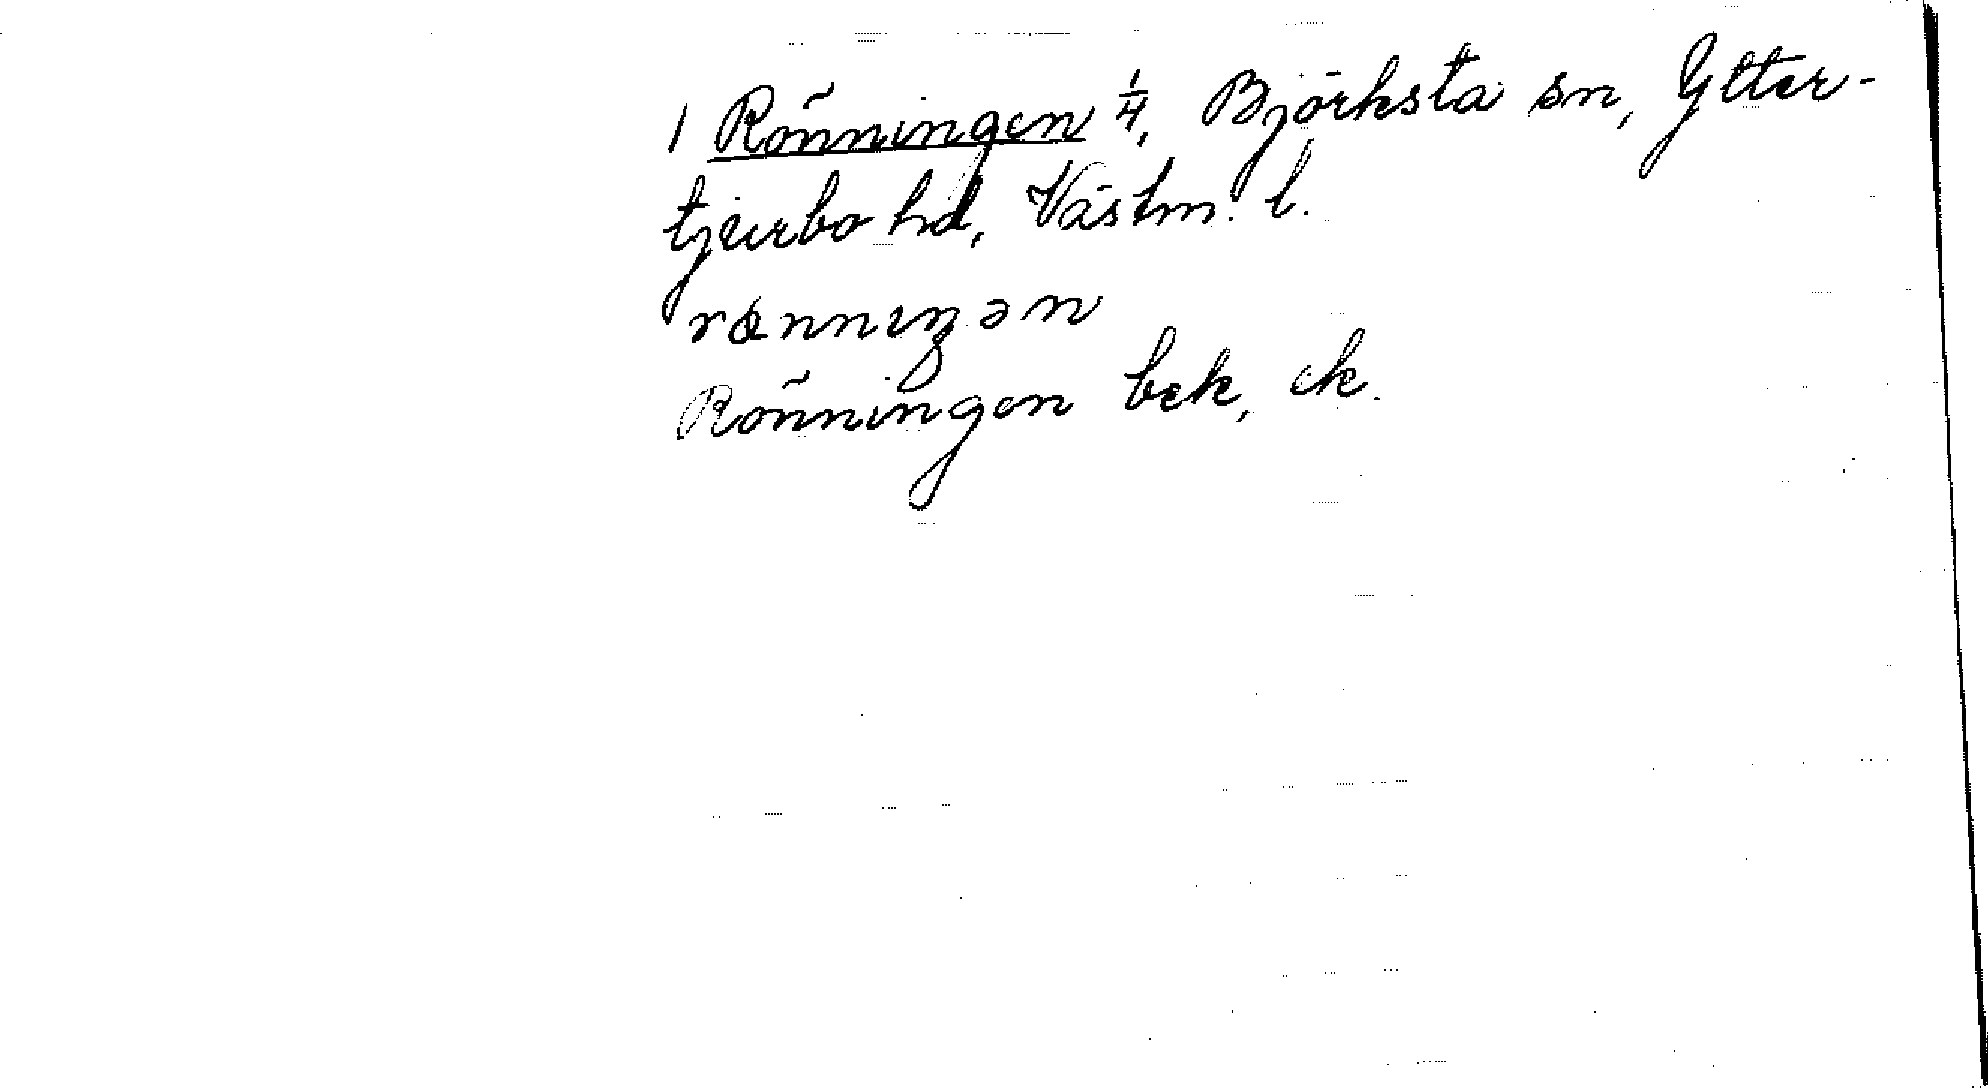 1 Rönningen 1/4, Björksta sn, Ytter-
tjurbo hd, Västm. l.
rönnıŋən
Rönningen bek, ek.